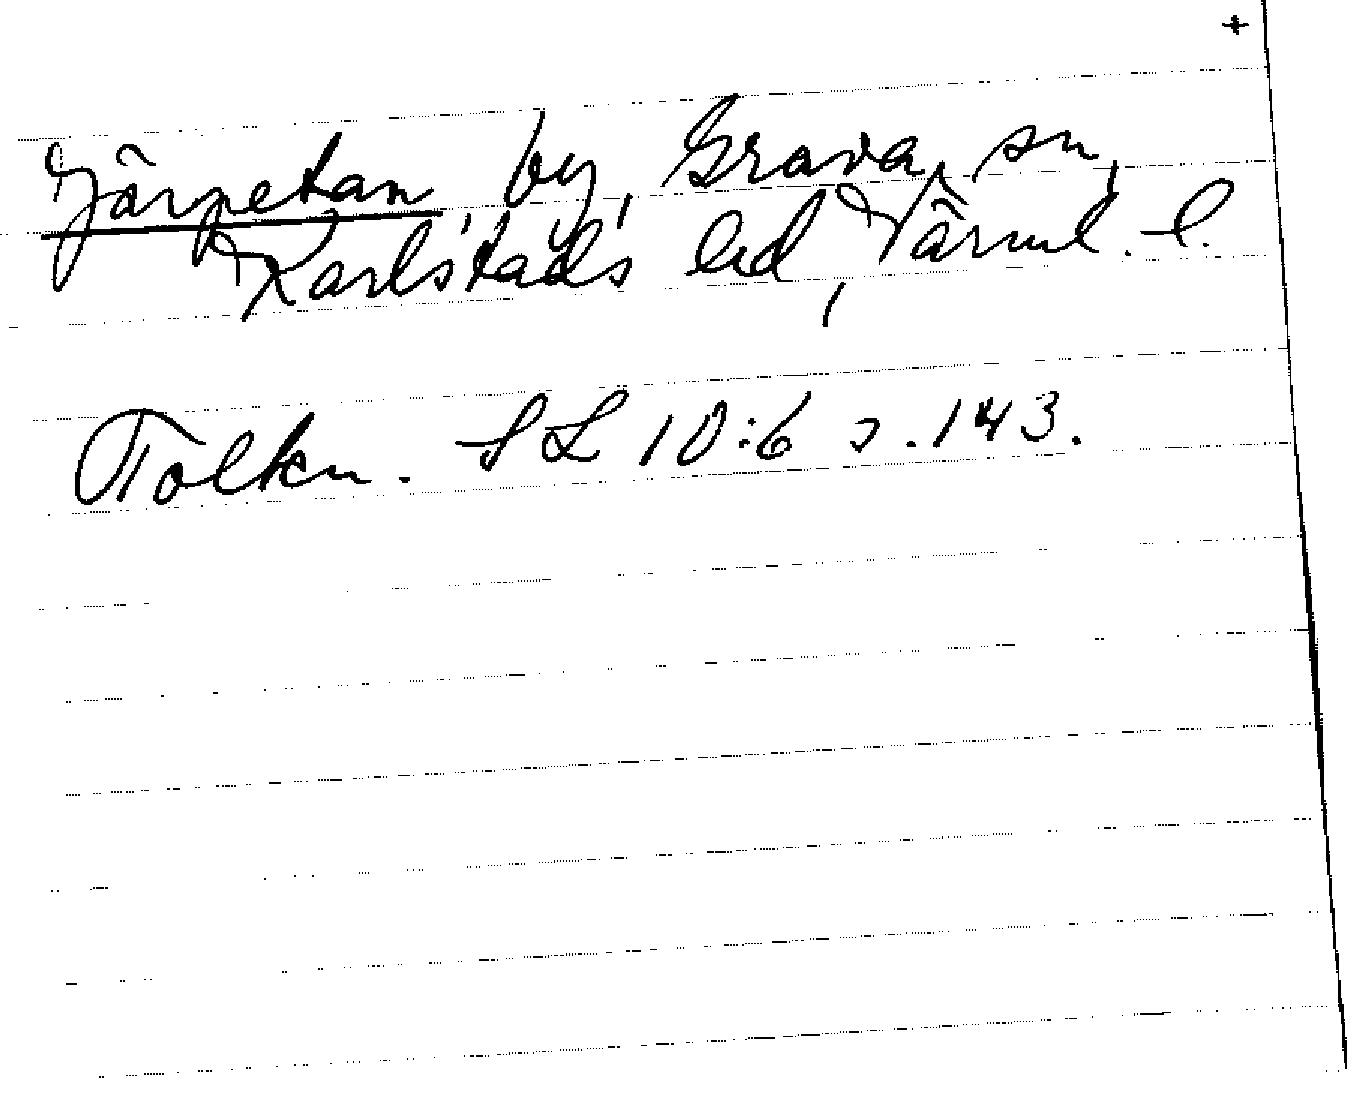 +
Järpetan by, Grava sn,
Karlstads hd, Värml. l.
Tolkn. SL 10:6 s. 143.